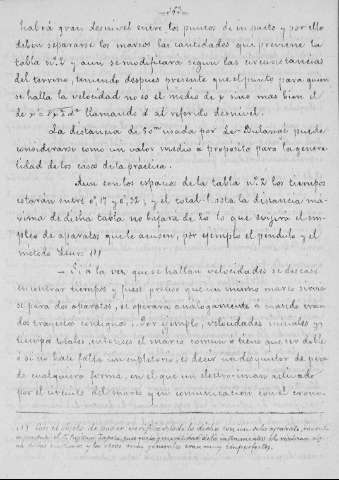 habrá gran desnivel entre los puntos de impacto y por ello
deben separarse los marcos las cantidades que previene la
tabla nº 2 y aun se modificará segun las circunstancias
del terreno, teniendo despues presente que el punto para quien
se halla la velocidad no es el medio de x sino mas bien el
de llamando d al referido desnivel.
La distancia de 50m usada por Le-Bulangé puede
considerarse como un valor medio á proposito para la genera-
lidad de los casos de la practica.
Aun con los espacios de la tabla nº 2 los tiempos
estarán entre 0",17 y 0",32, y el total hasta la distancia má-
xima de dicha tabla no bajará de lo que exijirá el em-
pleo de aparatos que le acusen, por ejemplo el péndulo y el
método (1)
Si á la vez que se hallan velocidades se desease
encontrar tiempos y fuese preciso que un mismo marco sirva-
se para dos aparatos, se operará análogamente á cuando eran
dos trayectos contiguos. Por ejemplo, velocidades iniciales y
tiempos totales, entonces el marco comun ó tiene que ser doble
ó si no hace falta un supletorio, es decir un desyuntor de
cualquiera forma, en el que un electro-iman activado
por el circuito del marco y en comunicacion con el crono-
(1) Con el objeto de poder verificar todo lo dicho con un solo aparato,